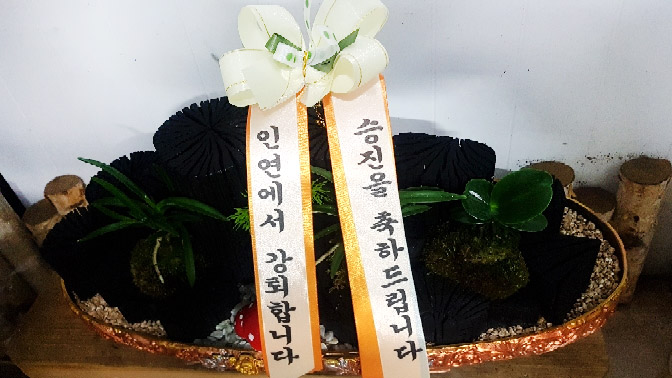 인연에서 강퇴합니다
승진을 축하드립니다